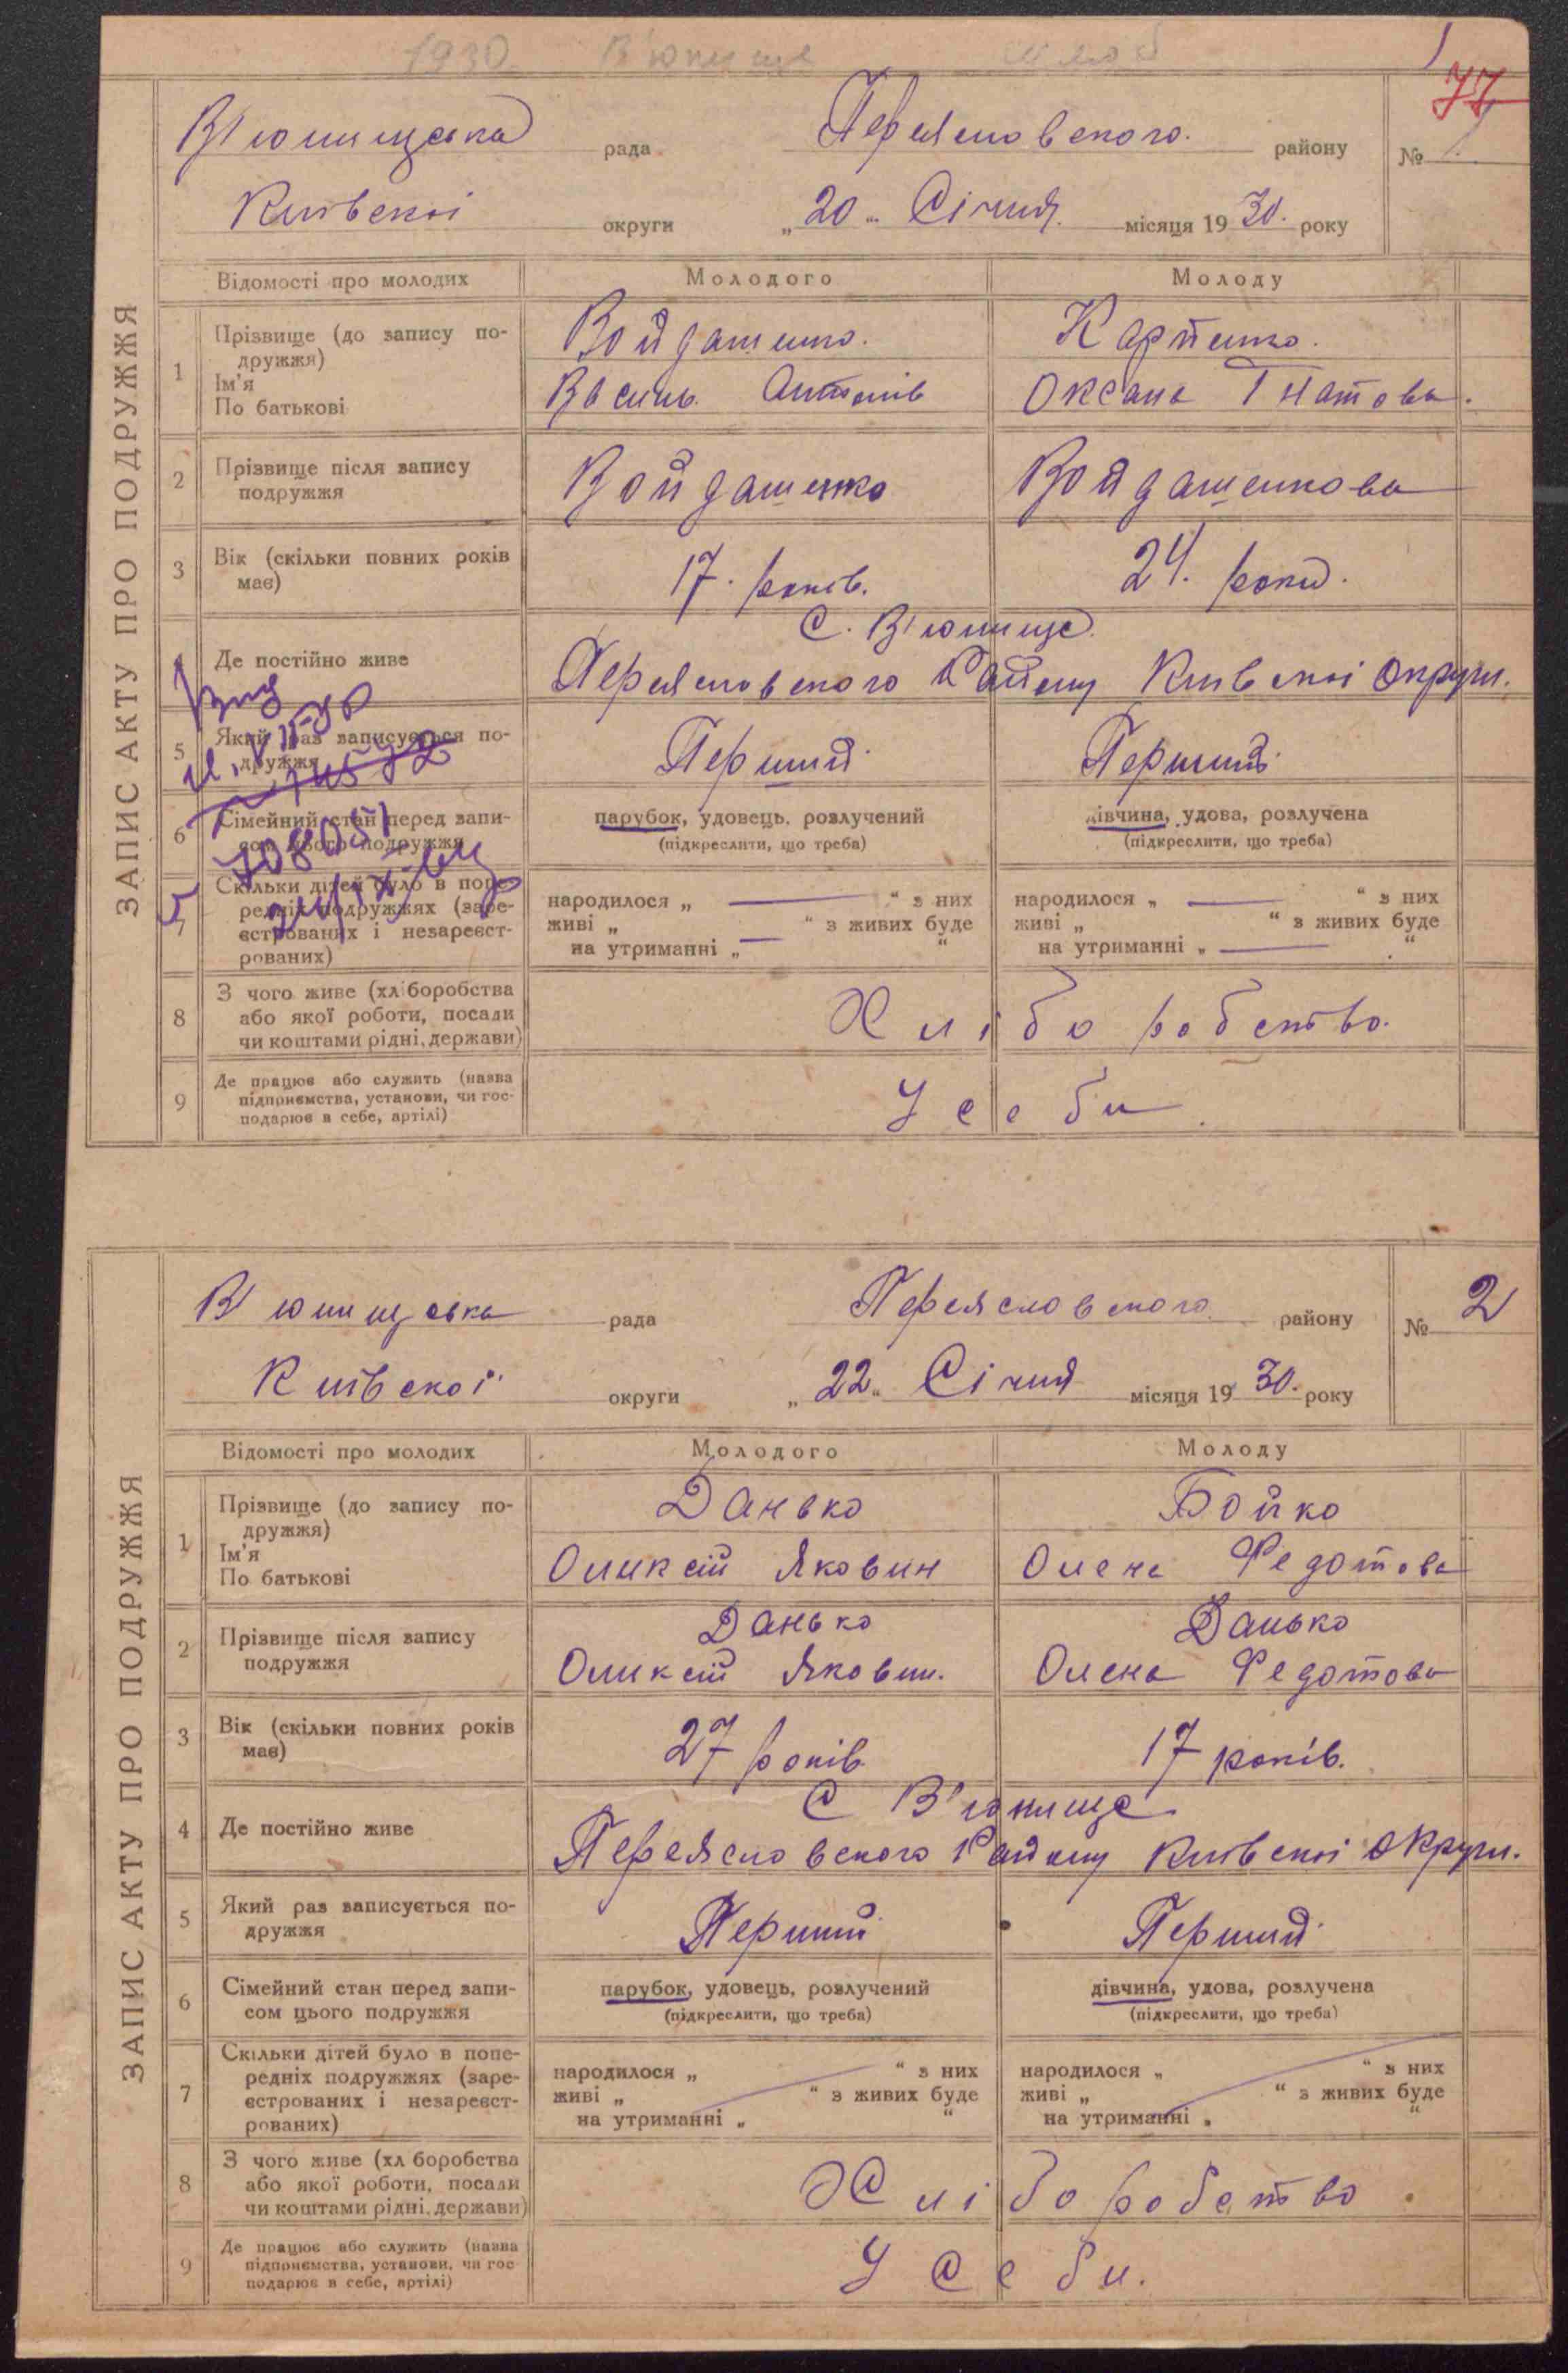 1930. В'юнище шлюб
77
В'юнищська рада Переясловского району № 1
Киівскоі округи „20" Січня місяця 1930. року
ЗАПИС АКТУ ПРО ПОДРУЖЖЯ
Відомості про молодих Молодого Молоду
1 Прізвище (до запису по-
дружжя)
Ім'я
По батькові
Войдашенко. Карпенко.
Василь Антонів Оксана Гнатова.
2 Прізвище після запису
подружжя
Войдашенко Войдашенкова
3 Вік (скільки повних років
має)
17. років. 24. роки.
4 Де постійно живе
С. В'юнище
Переясловского Району Киівскоі Округи.
5 Який раз записується по-
дружжя
Перший Перший
6 Сімейний стан перед запи-
сом цього подружжя
парубок, удовець, розлучений дівчина, удова, розлучена
(підкреслити, що треба) (підкреслити, що треба)
7 Скільки дітей було в попе-
редніх подружжях (заре-
єстрованих і незареєст-
рованих)
народилося „ “ з них народилося „ “ з них
живі „ “ з живих буде живі „ “ з живих буде
на утриманні „ “ на утриманні „ “
8 З чого живе (хліборобства
або якої роботи, посади
чи коштами рідні, держави)
Хліборобство.
9 Де працює або служить (назва
підприємства, установи, чи гос-
подарює в себе, артілі)
У себи.
В'юнищська рада Переясловского району № 2
Киівскоі округи „22" Січня місяця 1930. року
ЗАПИС АКТУ ПРО ПОДРУЖЖЯ
Відомості про молодих Молодого Молоду
1 Прізвище (до запису по-
дружжя)
Ім'я
По батькові
Данько Бойко
Оликсій Яковин Олена Федотова
2 Прізвище після запису
подружжя
Данько Данько
Оликсій Яковин. Олена Федотова
3 Вік (скільки повних років
має)
27 років 17 років.
4 Де постійно живе
С В'юнище
Переясловского Району Киівскоі Округи.
5 Який раз записується по-
дружжя
Перший Перший
6 Сімейний стан перед запи-
сом цього подружжя
парубок, удовець, розлучений дівчина, удова, розлучена
(підкреслити, що треба) (підкреслити, що треба)
7 Скільки дітей було в попе-
редніх подружжях (заре-
єстрованих і незареєст-
рованих)
народилося „ “ з них народилося „ “ з них
живі „ “ з живих буде живі „ “ з живих буде
на утриманні „ “ на утриманні „ “
8 З чого живе (хл боробства
або якої роботи, посади
чи коштами рідні, держави)
Хліборобство
9 Де працює або служить (назва
підприємства, установи, чи гос
подарює в себе, артілі)
У Себи.